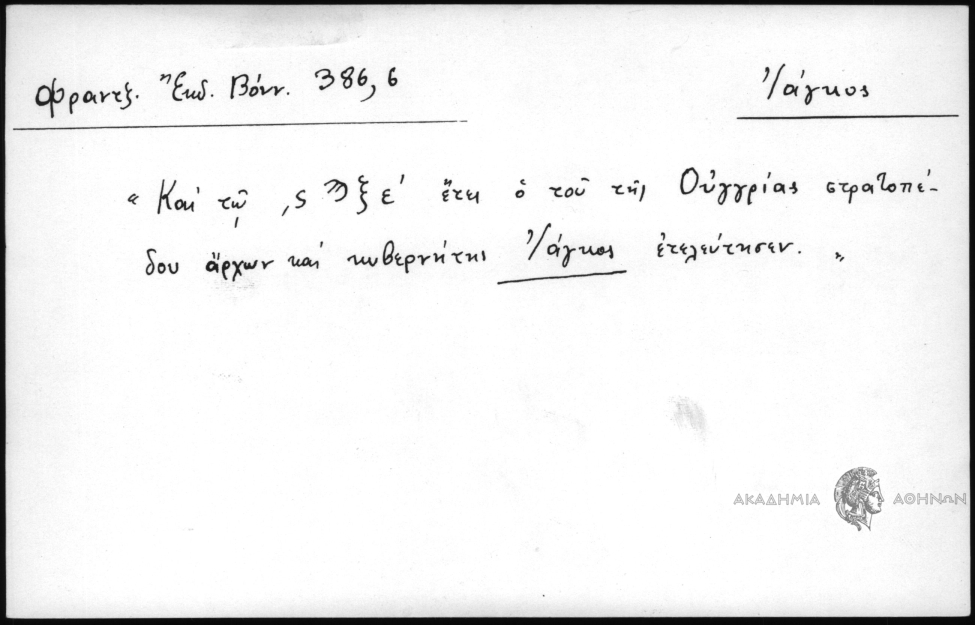 Φραντζ. Ἔκδ. Βόνν. 386,6
Ἰάγκος
“ Καὶ τῷ ͵ϛϠξε΄ ἔτει ὁ τοῦ τῆς Οὐγγρίας στρατοπέ-
δου ἄρχων καὶ κυβερνήτης Ἰάγκος ἐτελεύτησεν. ”
ΑΚΑΔΗΜΙΑ ΑΘΗΝΩΝ